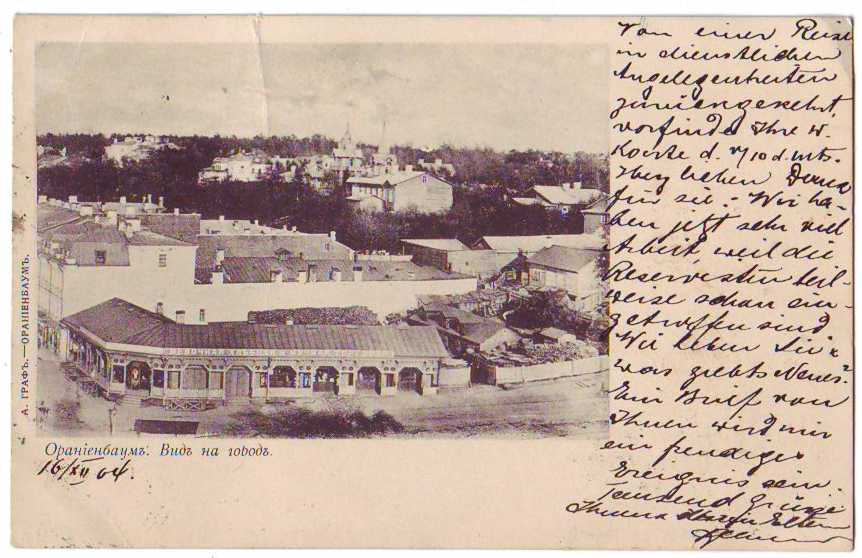 Von einer Reise
in dienstlichen
Angelegenheiten
zurückgekehrt,
vorfinde Ihre w.
Koerte d. d. mts.
Herzlichen Dank
für sie. Wir ha-
ben jetzt sehr viel
Arbeit, weil die
Reservisten teil-
weise schon ein-
getroffen sind
Wie leben Sie &
was giebts Neues.
Ein Brief von
Ihnen wird mir
ein freudiges
Ereignis sein
Tausend Grüsse
Ihnen Eltern
А. ГРАФЪ.—ОРАНІЕНБАУМЪ.
Ораніенбаумъ. Видъ на городъ.
16/XII 04.